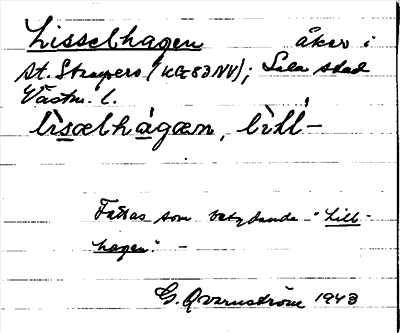 Lisselhagen åker i
St. Strupero (KC 83 NV); Sala stad
Västm. l.
lìsælhágæn, lìll-
Fattas som betydande "Lill-
hagen". -
G. Qvarnström 1943